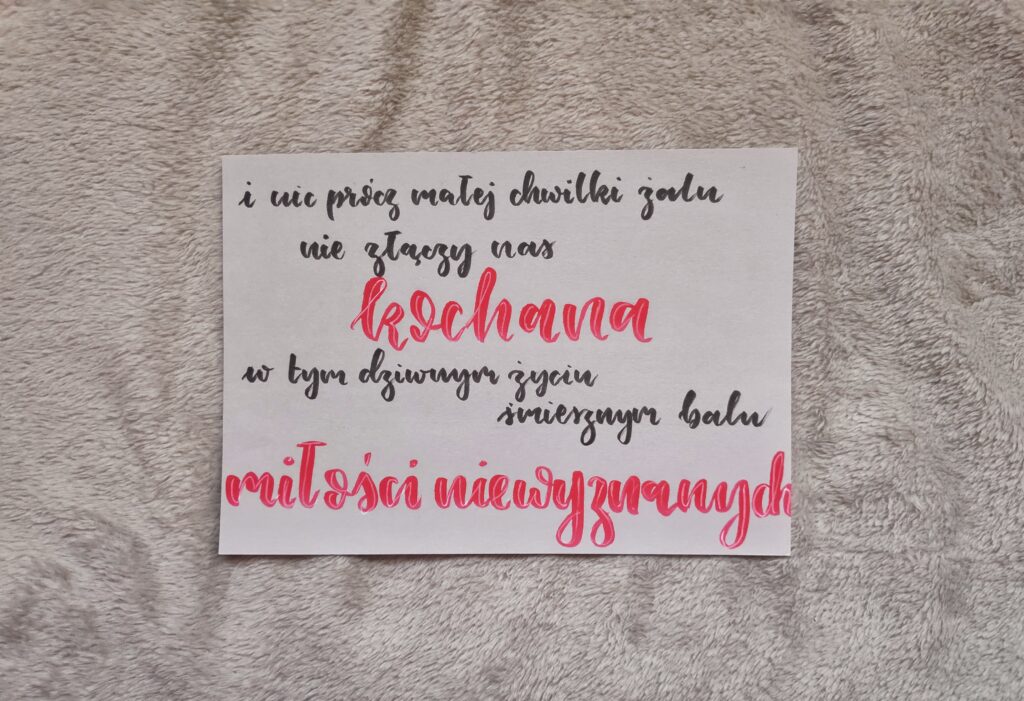 i nic prócz małej chwilki żalu
nie złączy nas
kochana
w tym dziwnym życiu
śmiesznym balu
miłości niewyznanych